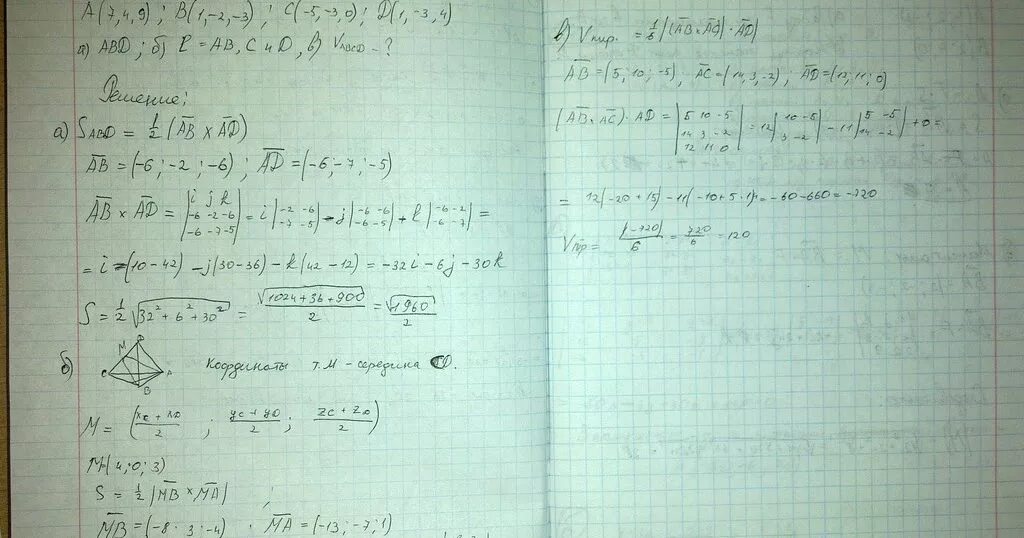 A(7,4,9) ; B(1,-2,-3) ; C(-5,-3,0) ; D(1,-3,4)
а) ABD ; б) P = AB, C и D, в) V_ABCD - ?
Решение:
а) S_ABD = 1/2 (AB × AD)
AB = (-6 ; -2 ; -6) ; AD = (-6 ; -7 ; -5)
AB × AD = |i j k; -6 -2 -6; -6 -7 -5| = i |-2 -6; -7 -5| - j |-6 -6; -6 -5| + k |-6 -2; -6 -7| =
= i (10-42) - j(30-36) - k(42-12) = -32i - 6j - 30k
S = 1/2 √(32² + 6² + 30²) = √(1024+36+900)/2 = √1960/2
б) D M C A B Координаты т.М - середина CD.
M = ((xc + xD)/2 ; (yc + yD)/2 ; (zc + zD)/2)
M(4;0;3)
S = 1/2 |MB × MA|
MB = (-8; 3; -4) . MA = (-13; -7; 1)
в) Vпир. = 1/6 |(AB × AC) · AD|
AB = (5; 10; -5), AC = (14, 3, -2), AD = (12; 11; 0)
(AB × AC) · AD = |5 10 -5; 14 3 -2; 12 11 0| = 12 |10 -5; 3 -2| - 11 |5 -5; 14 -2| + 0 =
= 12(-20 + 15) - 11(-10 + 5·14) = -60 - 660 = -720
Vпир = |-720|/6 = 720/6 = 120